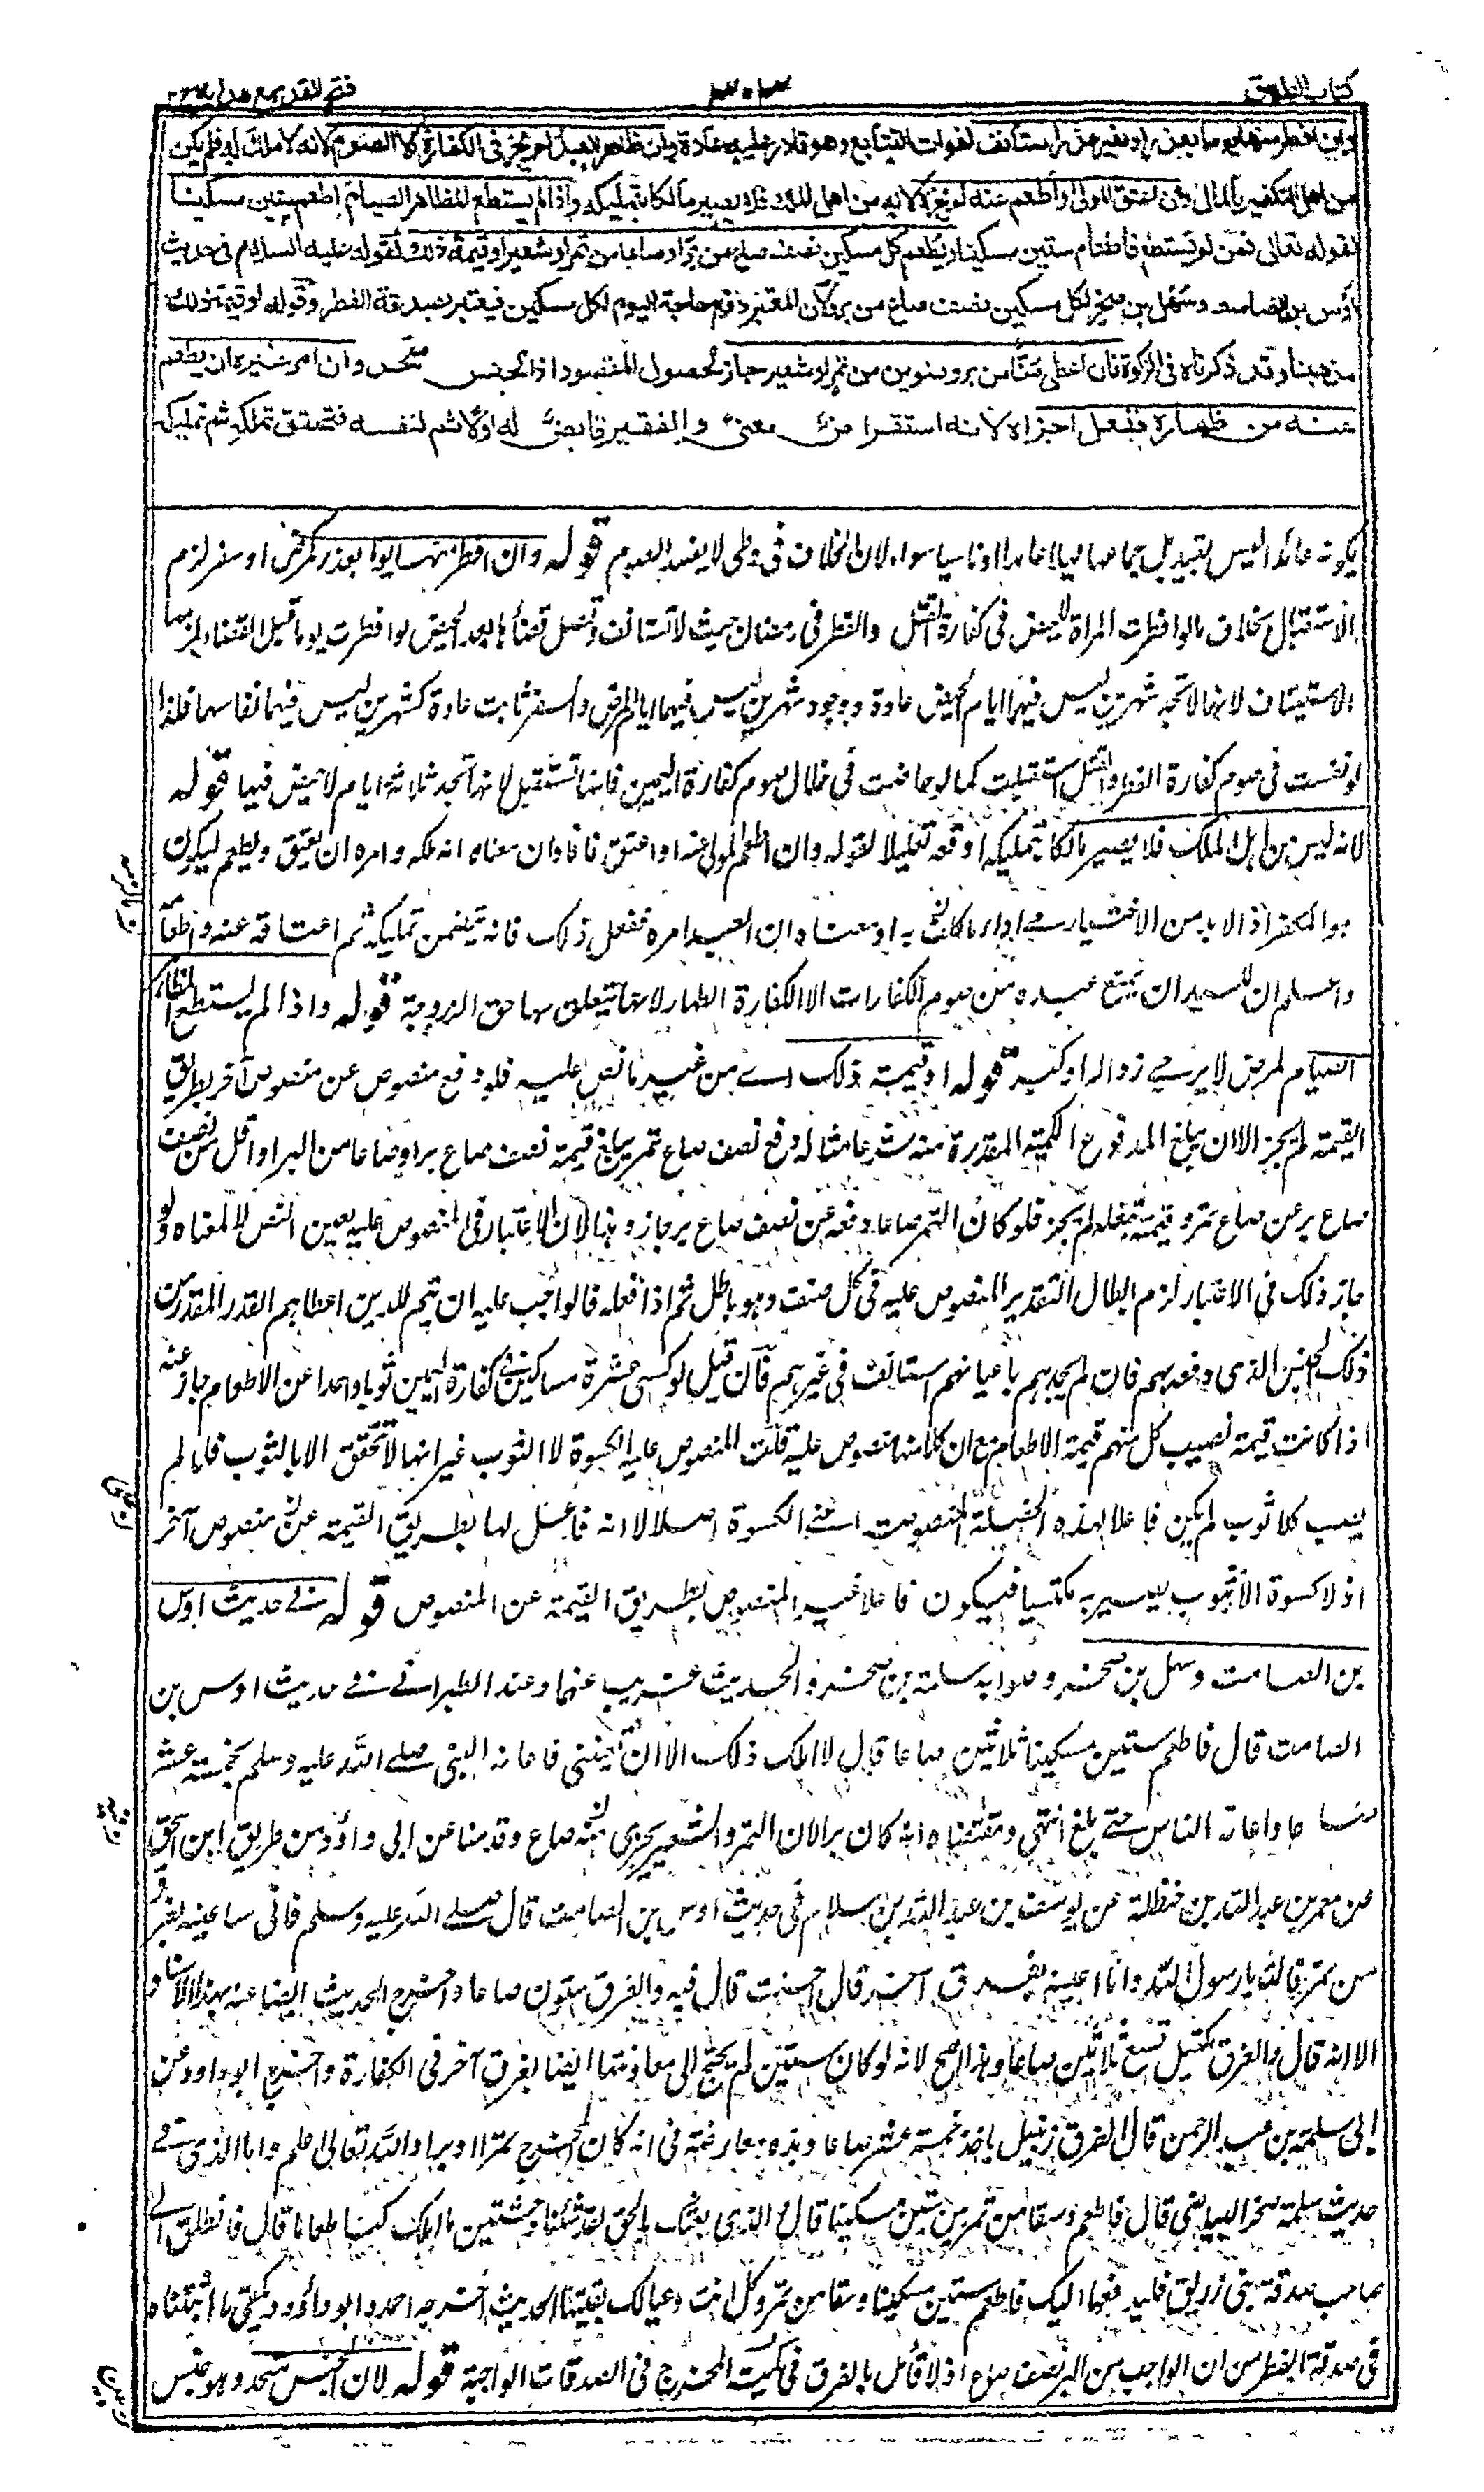 كتاب الطلاق
فتح القدير مع هداية
وان افطر منها يوما بعذر او بغير عذر استأنف لفوات التتابع وهو قادر عليه عادة وان ظاهر العبد لم يجز في الكفارة الا الصوم لانه لا ملك له فلم يكن
من اهل التكفير بالمال وان اعتق المولى او اطعم عنه لم يجز لانه ليس من اهل الملك فلا يصير مالكا بتمليكه واذا لم يستطع المظاهر الصيام اطعم ستين مسكينا
لقوله تعالى فمن لم يستطع فاطعام ستين مسكينا ويطعم كل مسكين نصف صاع من بر او صاعا من تمر او شعير او قيمة ذلك لقوله عليه السلام في حديث
اوس بن الصامت وسهل بن صخر لكل مسكين نصف صاع من بر ولان المعتبر دفع حاجة اليوم لكل مسكين فيعتبر بصدقة الفطر وقوله او قيمة ذلك
مذهبنا وقد ذكرناه في الزكوة فان اعطى منا من بر ومنوين من تمر او شعير جاز لحصول المقصود اذ الجنس متحد وان امر غيره ان يطعم
عنه من ظهاره ففعل اجزاه لانه استقراض معنى والفقير قابض له اولا ثم لنفسه فتحقق تملكه ثم تمليكه
يكونه عائدا ليس بقيد بل جماعها ليلا عامدا او ناسيا سواء لان الخلاف في وطى لا يفسد الصوم قوله وان افطر منها يوما بعذر كمرض او سفر لزم
الاستقبال بخلاف ما لو افطرت المرأة للحيض في كفارة القتل والفطر في رمضان حيث لا تستانف وتصل قضاءها بعد الحيض لو افطرت يوما قبل القضاء لزمها
الاستيناف لانها لا تجد شهرين ليس فيهما ايام الحيض عادة ووجود شهرين ليس فيهما ايام المرض والسفر ثابت عادة كشهرين ليس فيهما نفاسها فلذا
لو نفست في صوم كفارة الفطر والقتل استقبلت كما لو حاضت في خلال صوم كفارة اليمين فانها تستقبل لانها تجد ثلاثة ايام لا حيض فيها قوله
لانه ليس من اهل الملك فلا يصير مالكا بتمليكه اوقعه تعليلا لقوله وان اطعم المولى عنه او اعتق فافاد ان معناه انه ملكه وامره ان يعتق ويطعم ليكون
هو المكفر اذ لا بد من الاختيار في اداء ما كلف به او معناه ان العبد امره ففعل ذلك فانه يتضمن تمليكه ثم اعتاقه عنه واطعامه
واعلم ان للسيد ان يمنع عبده من صوم الكفارات الا كفارة الظهار لانها يتعلق بها حق الزوجة قوله واذا لم يستطع المظاهر
الصيام لمرض لا يرجى زواله او كبر قوله او قيمة ذلك اي من غير ما نص عليه فلو دفع منصوص عن منصوص آخر بطريق
القيمة لم يجز الا ان يبلغ المدفوع الكمية المقدرة منه شرعا مثاله دفع نصف صاع تمر يبلغ قيمة نصف صاع بر او صاعا من البر او اقل من نصف
صاع بر عن صاع تمر وقيمته تبلغه لم يجز فلو كان التمر صاعا دفعه عن نصف صاع بر جاز وهذا لان الاعتبار في المنصوص عليه بعين النص لا لمعناه ولو
جاز ذلك في الاعتبار لزم ابطال التقدير المنصوص عليه في كل صنف وهو باطل ثم اذا فعله فالواجب عليه ان يتم للذين اعطاهم القدر المقدر من
ذلك الجنس الذي دفعه بهم فان لم يجدهم باعيانهم استانف في غيرهم فان قيل لو كسى عشرة مساكين في كفارة اليمين ثوبا واحدا عن الاطعام جاز عنه
اذا كانت قيمة نصيب كل منهم قيمة الاطعام مع ان كلا منها منصوص عليه قلت المنصوص عليه الكسوة لا الثوب غير انها لا تتحقق الا بالثوب فاذا لم
يصب كلا ثوب لم يكن فاعلا بهذه الخصلة المنصوصة اعني الكسوة اصلا لا انه فاعل لها بطريق القيمة عن منصوص آخر
اذ لا كسوة الا بثوب يصير به مكتسيا فيكون فاعلا غير المنصوص بطريق القيمة عن المنصوص قوله في حديث اوس
بن الصامت وسهل بن صخر وصوابه سلمة بن صخر والحديث غريب عنهما وعند الطبراني في حديث اوس بن
الصامت قال فاطعم ستين مسكينا ثلاثين صاعا قال لا املك ذلك الا ان تعينني فاعانه النبي صلى الله عليه وسلم بخمسة عشر
صاعا واعانه الناس حتى بلغ انتهى ومقتضاه انه كان برا لان التمر والشعير يجزى منه صاع وقدمنا عن ابي داؤد من طريق ابن اسحق
عن معمر بن عبد الله بن حنظلة عن يوسف بن عبد الله بن سلام في حديث اوس بن الصامت قال صلى الله عليه وسلم فاني ساعينه بفرق
من تمر قالت يا رسول الله وانا اعينه بفرق آخر قال احسنت قال فيه والفرق ستون صاعا واخرج الحديث ايضا عنه بهذا الاسناد
الا انه قال والفرق مكتل تسع ثلاثين صاعا وهذا اصح لانه لو كان ستين لم يحتج الى معاونتها ايضا بفرق آخر في الكفارة واخرج ابو داود عن
ابي سلمة بن عبد الرحمن قال الفرق زنبيل ياخذ خمسة عشر صاعا وهذه معارضة في انه كان المخرج تمرا او برا والله تعالى اعلم واما الذي في
حديث سلمة بن صخر البياضي قال فاطعم وسقا من تمر بين ستين مسكينا قال والذي بعثك بالحق لقد بتنا وحشين ما املك لنا طعاما قال فانطلق الى
صاحب صدقة بني زريق فليدفعها اليك فاطعم ستين مسكينا وسقا من تمر وكل انت وعيالك بقيتها الحديث اخرجه احمد وابو داؤد ويكفي ما اثبتناه
في صدقة الفطر من ان الواجب من البر نصف صاع اذ لا قائل بالفرق في كمية المخرج في الصدقات الواجبة قوله لان الجنس متحد وهو جنس